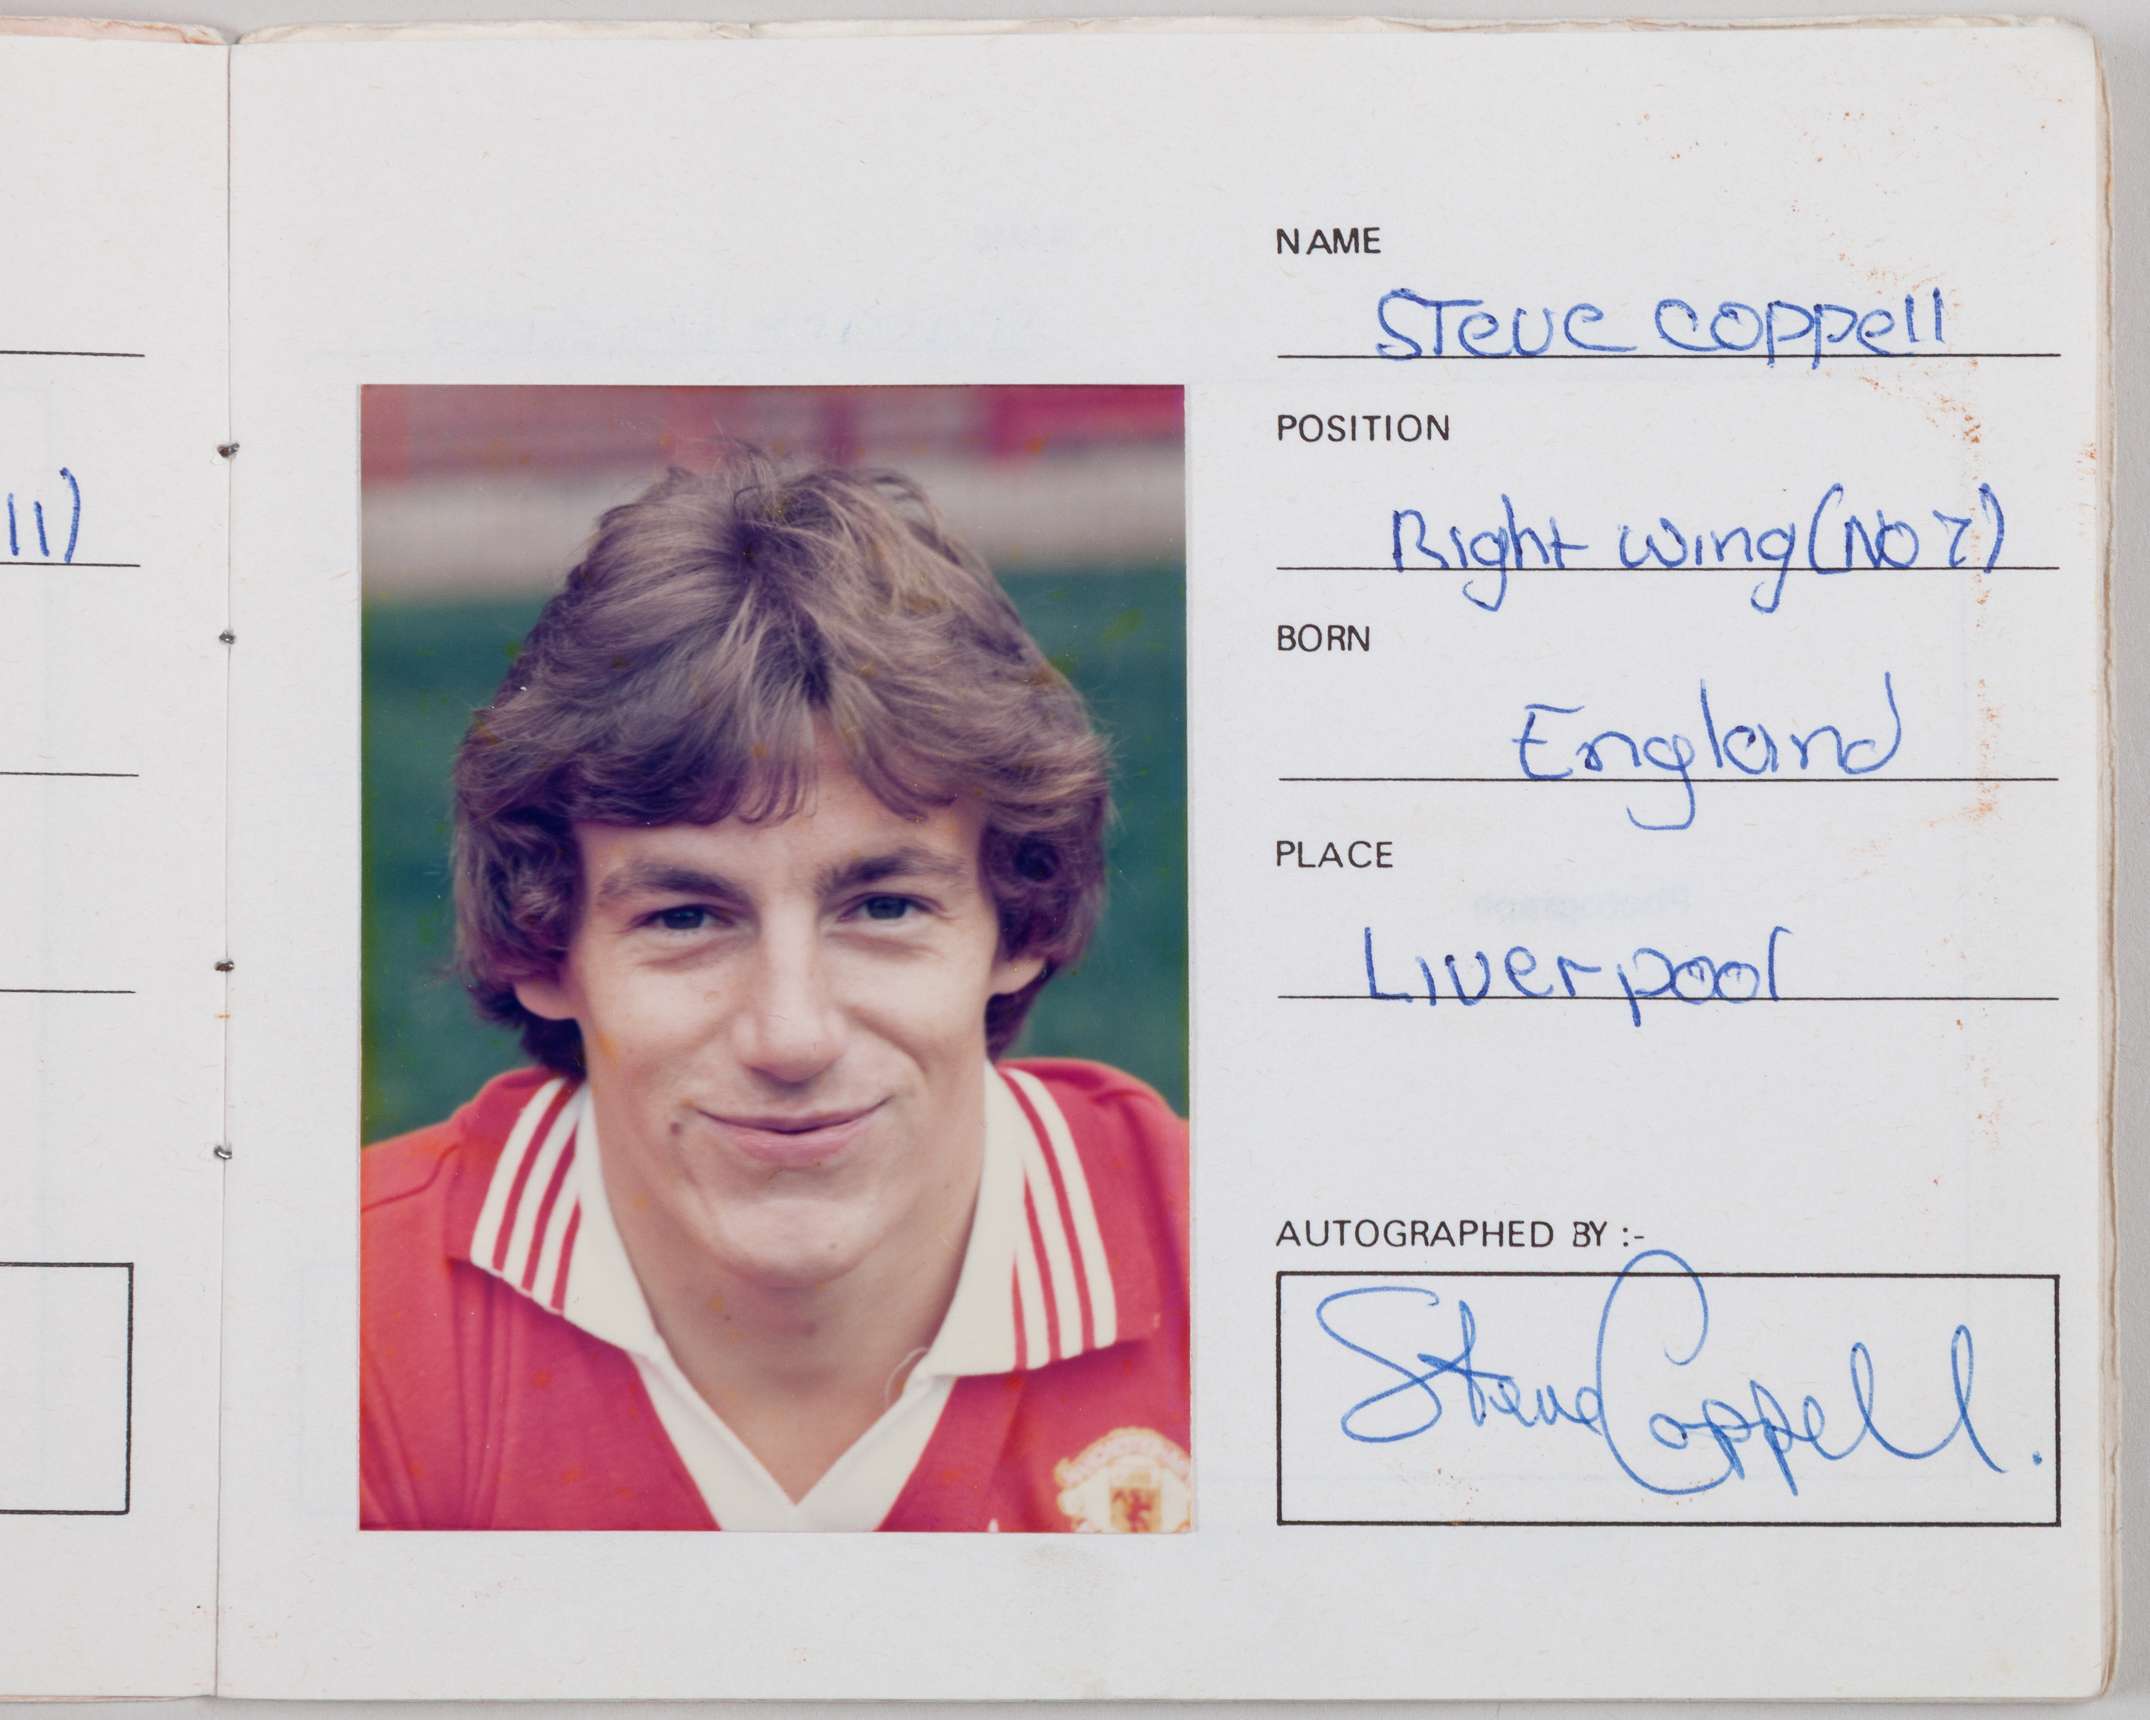 11)
NAME
Steve Coppell
POSITION
Right wing (No 7)
BORN
England
PLACE
Liverpool
AUTOGRAPHED BY :-
Steve Coppell.